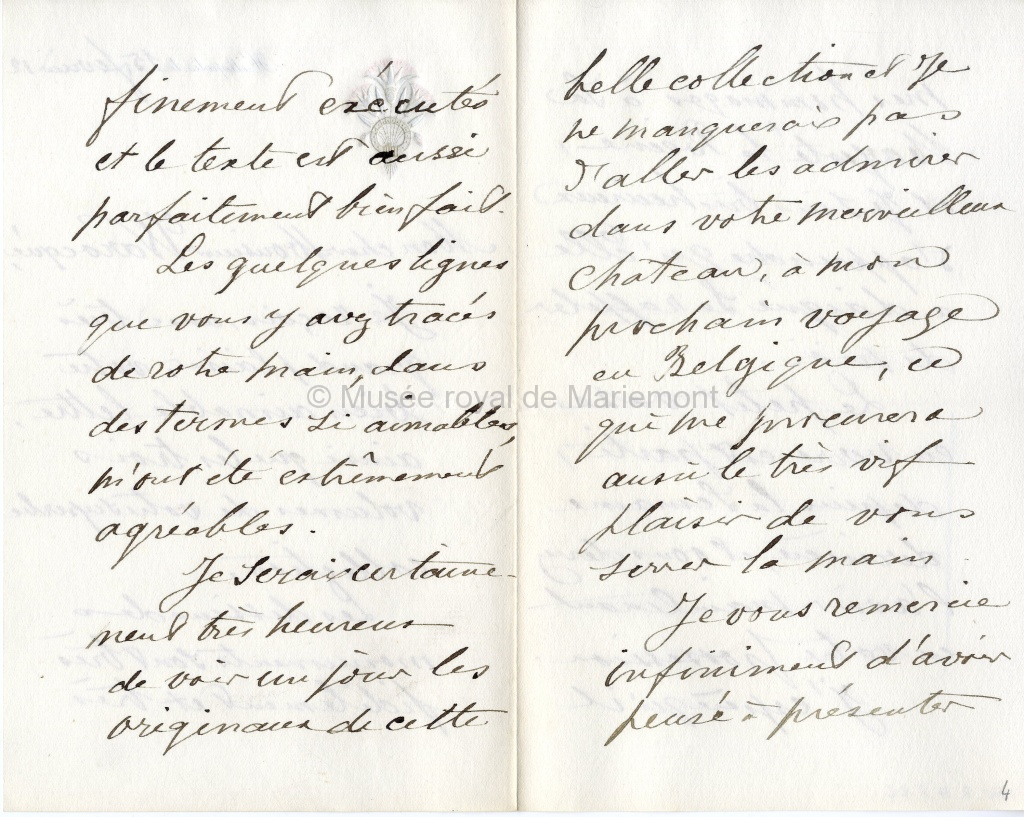 finement exécutés
et le texte est aussi
parfaitement bien fait.
Les quelques lignes
que vous y avez tracés
de votre main, dans
des termes si aimables,
m'ont été extrêmement
agréables.
Je serais certaine-
ment très heureux
de voir un jour les
originaux de cette
belle collection et je
ne manquerais pas
d'aller les admirer
dans votre merveilleux
château, à mon
prochain voyage
en Belgique, ce
qui me procurera
aussi le très vif
plaisir de vous
serrer la main.
Je vous remercie
infiniment d'avoir
pensé à présenter
4
© Musée royal de Mariemont